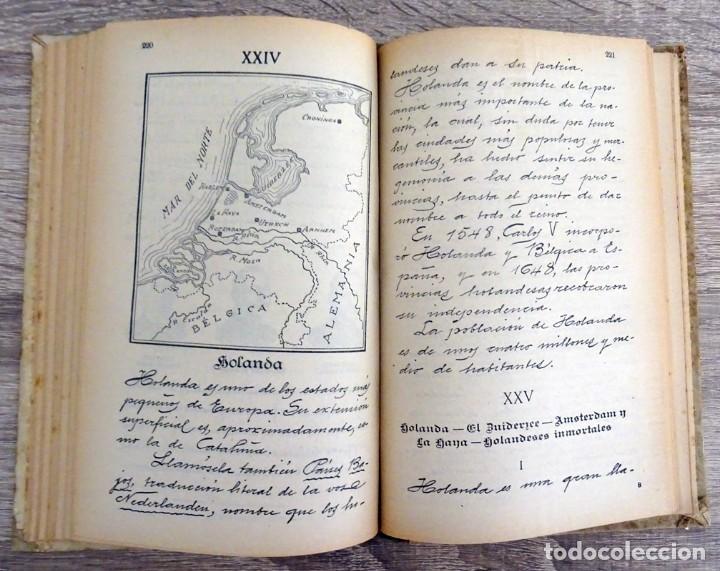 220
XXIV
GRONINGA
MAR DEL NORTE
ZUIDERZEE
HARLEM
AMSTERDAM
LA HAYA
UTRECH
ROTTERDAM
ARNHEM
R. Rhin
R. MOSA
R. Escalda
BÉLGICA
ALEMANIA
Holanda
Holanda es uno de los estados más
pequeños de Europa. Su extensión
superficial es, aproximadamente, co-
mo la de Cataluña.
Llamósela también Países Ba-
jos, traducción literal de la voz
Nederlanden, nombre que los ho-
221
landeses dan a su patria.
Holanda es el nombre de la pro-
vincia más importante de la na-
ción, la cual, sin duda por tener
las ciudades más populosas y mer-
cantiles, ha hecho sentir su he-
gemonía a las demás pro-
vincias, hasta el punto de dar
nombre a todo el reino.
En 1548, Carlos V incorpo-
ró Holanda y Bélgica a Es-
paña, y en 1648, las pro-
vincias holandesas recobraron
su independencia.
La población de Holanda
es de unos cuatro millones y me-
dio de habitantes.
XXV
Holanda — El Zuiderzee — Amsterdam y
La Haya — Holandeses inmortales
I
Holanda es una gran lla-
8
todocoleccion.net